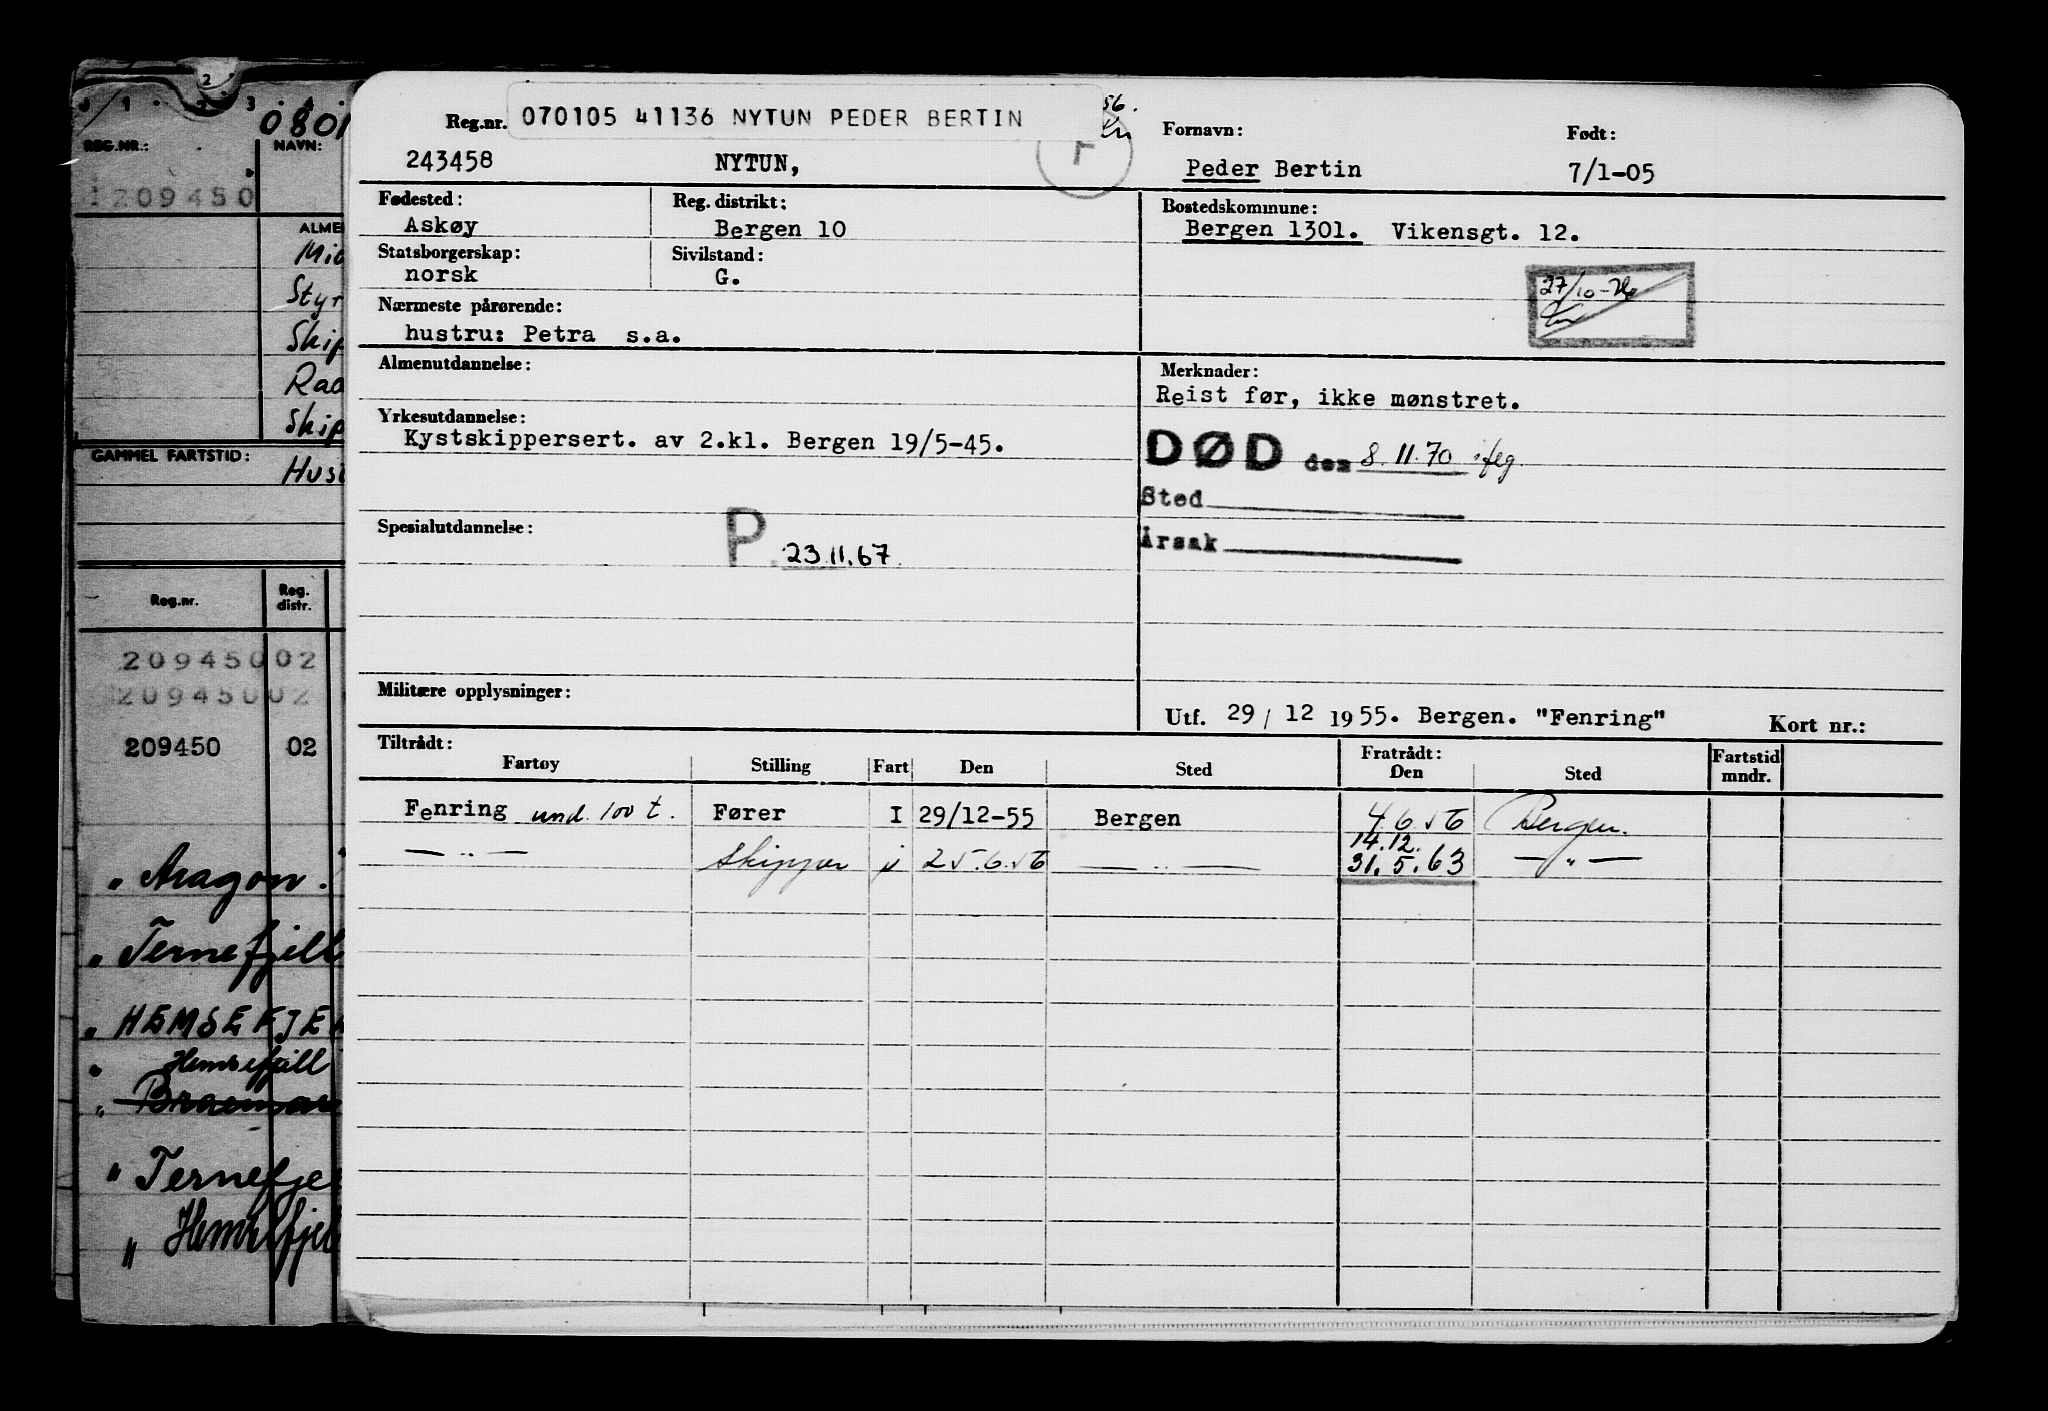 2
0 1 2 3 4
0801
REG.NR.:
NAVN:
209450
ALME
Styr
Skip
Rad
Skip
GAMMEL FARTSTID:
Reg.nr.
Reg. distr.
20945002
20945002
209450 02
" Aragon.
" Ternefjell
" HEMSEFJE
" Hemsefjell
" Ternefje
" Hemsefjel
56.
Reg.nr. 070105 41136 NYTUN PEDER BERTIN
Fornavn: Født:
243458 NYTUN, F Peder Bertin 7/1-05
Fødested: Reg. distrikt: Bostedskommune:
Askøy Bergen 10 Bergen 1301. Vikensgt. 12.
Statsborgerskap: Sivilstand:
norsk G.
27/10-
Nærmeste pårørende:
hustru: Petra s.a.
Almenutdannelse: Merknader:
Reist før, ikke mønstret.
Yrkesutdannelse:
Kystskippersert. av 2.kl. Bergen 19/5-45.
DØD den 8.11.70
Sted
Årsak
Spesialutdannelse:
P 23.11.67.
Militære opplysninger:
Utf. 29/12 1955. Bergen. "Fenring" Kort nr.:
Tiltrådt: Fratrådt: Fartstid mndr.
Fartøy Stilling Fart Den Sted Den Sted
Fenring und. 100 t. Fører I 29/12-55 Bergen 4.6.56 Bergen.
14.12.
— " — Skipper 25.6.56 — " — 31.5.63 — " —